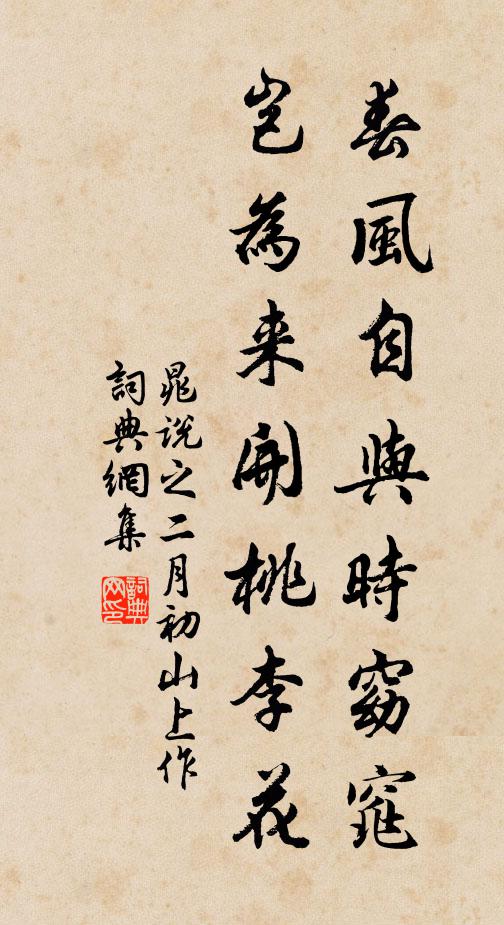 春風自與時窈窕
豈為来開桃李花
晁說之二月初山上作
詞典網集
詞典
网印